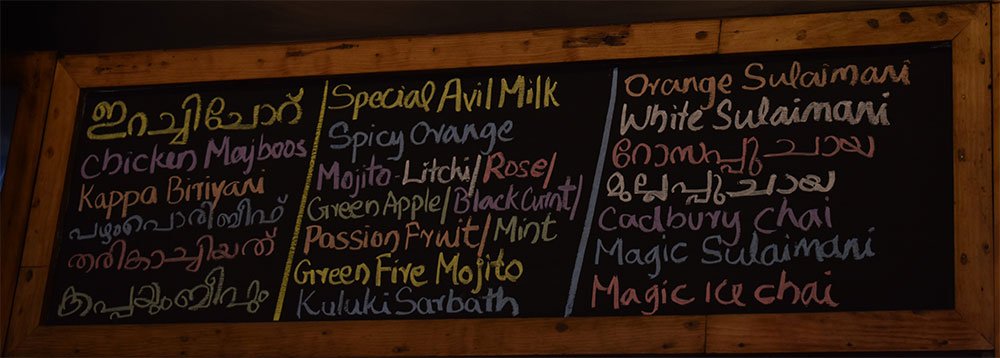 ഇറച്ചിചോറ്
Chicken Majboos
Kappa Biriyani
പഴംപൊരിബീഫ്
തരികാച്ചിയത്
കപ്പയുംബീഫും
Special Avil Milk
Spicy Orange
Mojito-Litchi/Rose/
Green Apple/Black Curnt/
Passion Fruit/Mint
Green Five Mojito
Kuluki Sarbath
Orange Sulaimani
White Sulaimani
റോസപ്പൂ ചായ
മുല്ലപ്പൂചായ
Cadbury Chai
Magic Sulaimani
Magic Ice chai